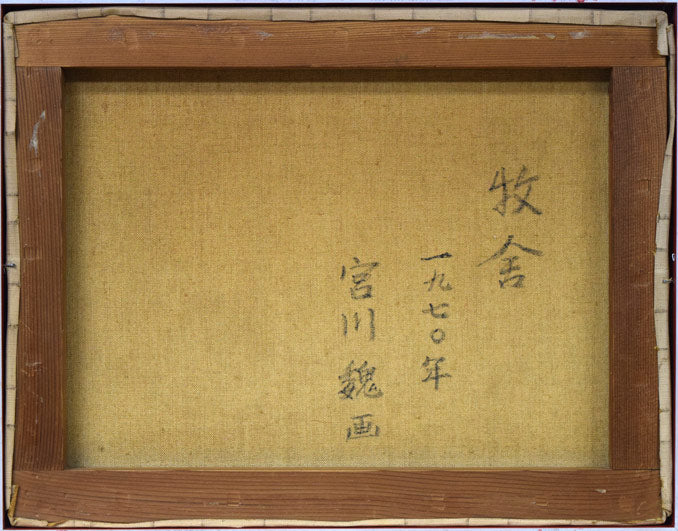 牧舎
一九七〇年
宮川魏画